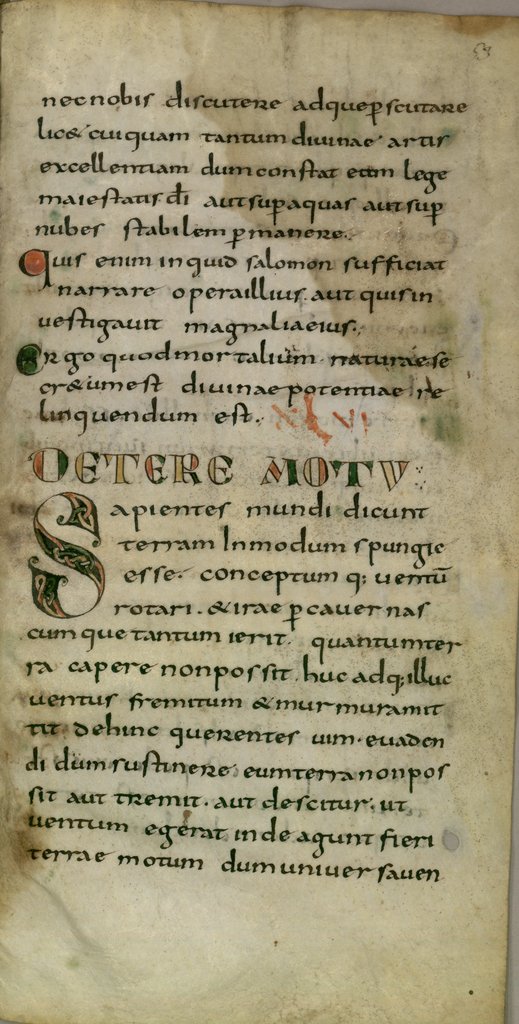 nec nobis discutere adque p̱scrutare
lic& cuiquam tantum divinae artis
excellentiam dum constat eam lege
maiestatis dī aut sup aquas aut sup
nubes stabilem p̱manere.
Quis enim inquid salomon sufficiat
narrare opera illius. aut quis in
vestigavit magnalia eius.
Ergo quod mortalium naturae se
cr&um est divinae potentiae re
linquendum est. XLVI
DE TERE MOTU
Sapientes mundi dicunt
terram In modum spungie
esse. conceptum q; ventū
rotari. & irae p̱ cavernas
cumque tantum ierit. quantum ter
ra capere non possit. huc adq; illuc
ventus fremitum & murmura mit
tit. dehinc querentes vim. evaden
di dum sustinere eum terra non pos
sit aut tremit. aut descitur. ut
ventum egerat inde agunt fieri
terrae motum dum universa ven